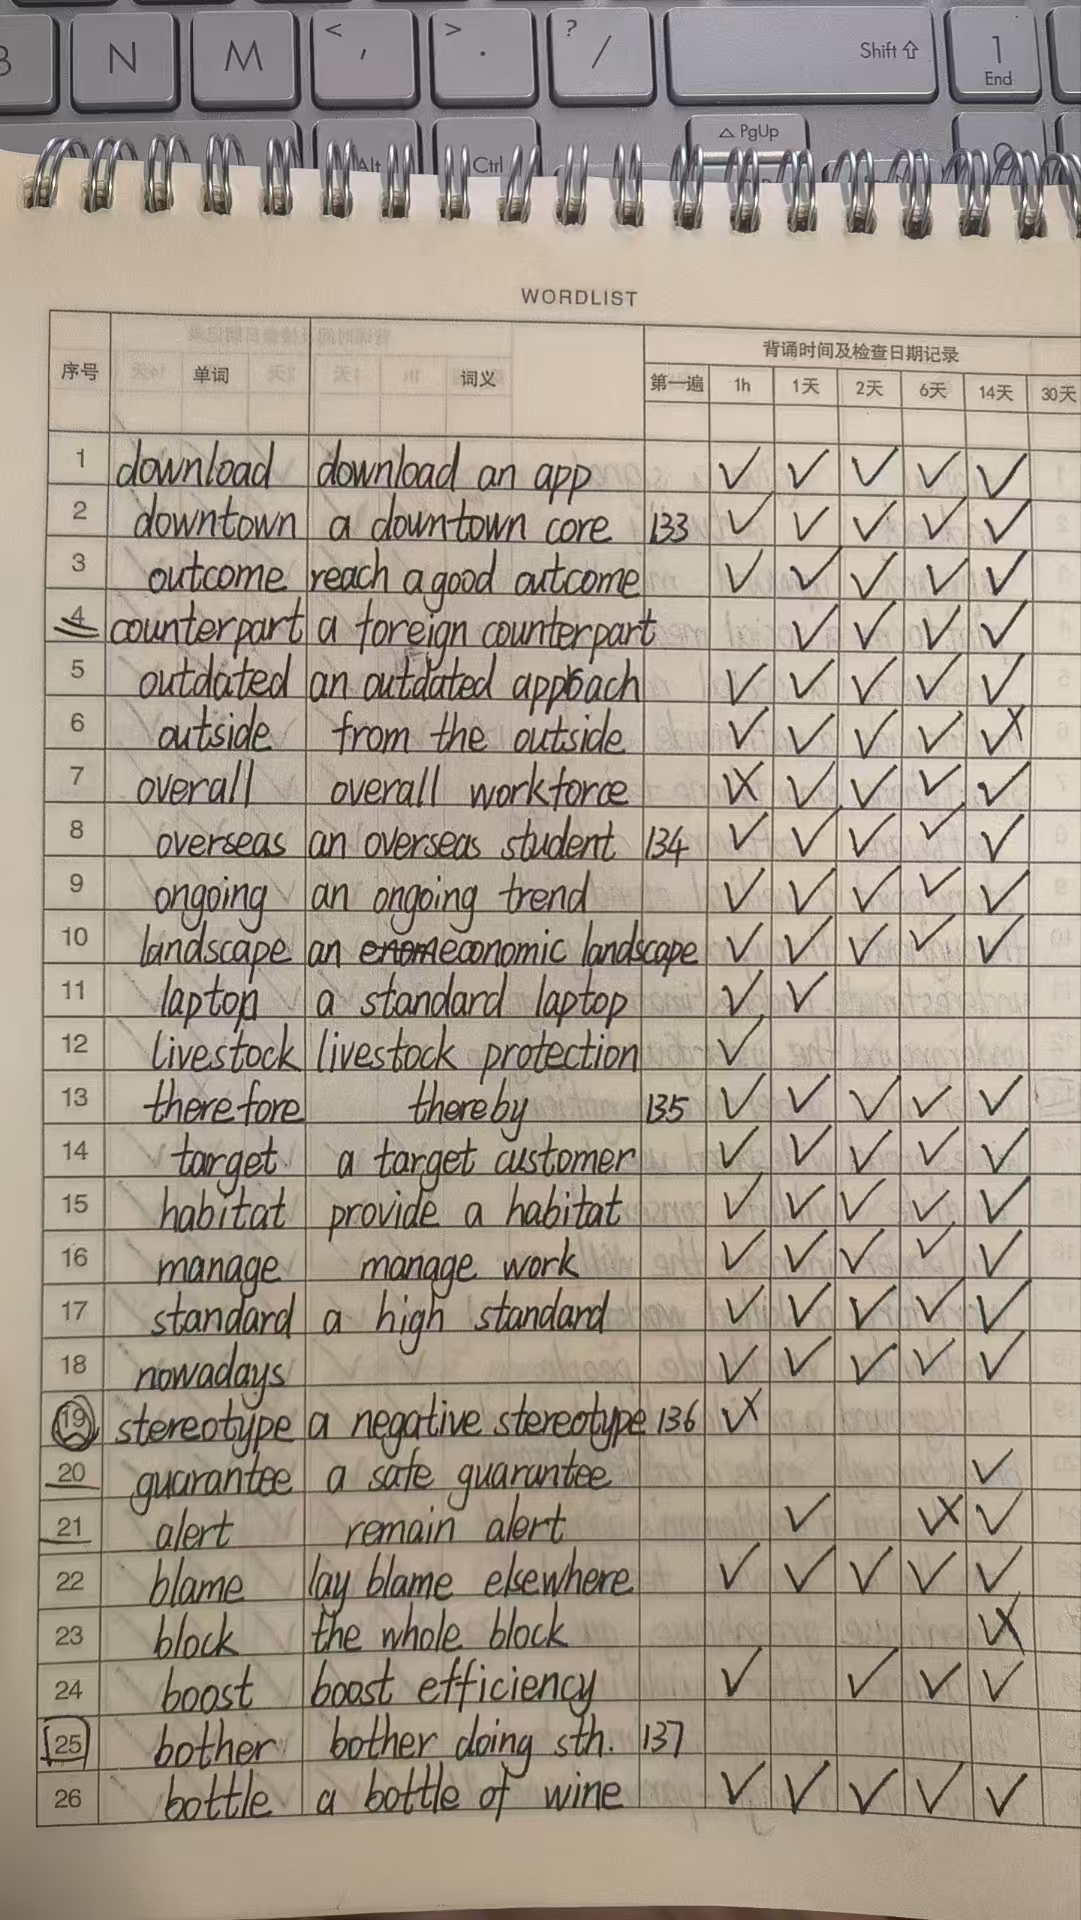 B N M < , > . ? / Shift ⇧ 1 End
Alt Ctrl △ PgUp
WORDLIST
序号 单词 词义 背诵时间及检查日期记录
第一遍 1h 1天 2天 6天 14天 30天
1 download download an app ✓ ✓ ✓ ✓ ✓
2 downtown a downtown core 133 ✓ ✓ ✓ ✓ ✓
3 outcome reach a good outcome ✓ ✓ ✓ ✓ ✓
4 counterpart a foreign counterpart ✓ ✓ ✓ ✓
5 outdated an outdated approach ✓ ✓ ✓ ✓ ✓
6 outside from the outside ✓ ✓ ✓ ✓ ✓x
7 overall overall workforce ✓x ✓ ✓ ✓ ✓
8 overseas an overseas student 134 ✓ ✓ ✓ ✓ ✓
9 ongoing an ongoing trend ✓ ✓ ✓ ✓ ✓
10 landscape an economic landscape ✓ ✓ ✓ ✓ ✓
11 laptop a standard laptop ✓ ✓
12 livestock livestock protection ✓
13 therefore thereby 135 ✓ ✓ ✓ ✓ ✓
14 target a target customer ✓ ✓ ✓ ✓ ✓
15 habitat provide a habitat ✓ ✓ ✓ ✓ ✓
16 manage manage work ✓ ✓ ✓ ✓ ✓
17 standard a high standard ✓ ✓ ✓ ✓ ✓
18 nowadays ✓ ✓ ✓ ✓ ✓
19 stereotype a negative stereotype 136 ✓x
20 guarantee a safe guarantee ✓
21 alert remain alert ✓ ✓x ✓
22 blame lay blame elsewhere ✓ ✓ ✓ ✓ ✓
23 block the whole block ✓x
24 boost boost efficiency ✓ ✓ ✓ ✓
25 bother bother doing sth. 137
26 bottle a bottle of wine ✓ ✓ ✓ ✓ ✓